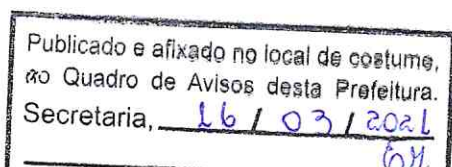 Publicado e afixado no local de costume,
no Quadro de Avisos desta Prefeitura.
Secretaria, 16 / 03 / 2021